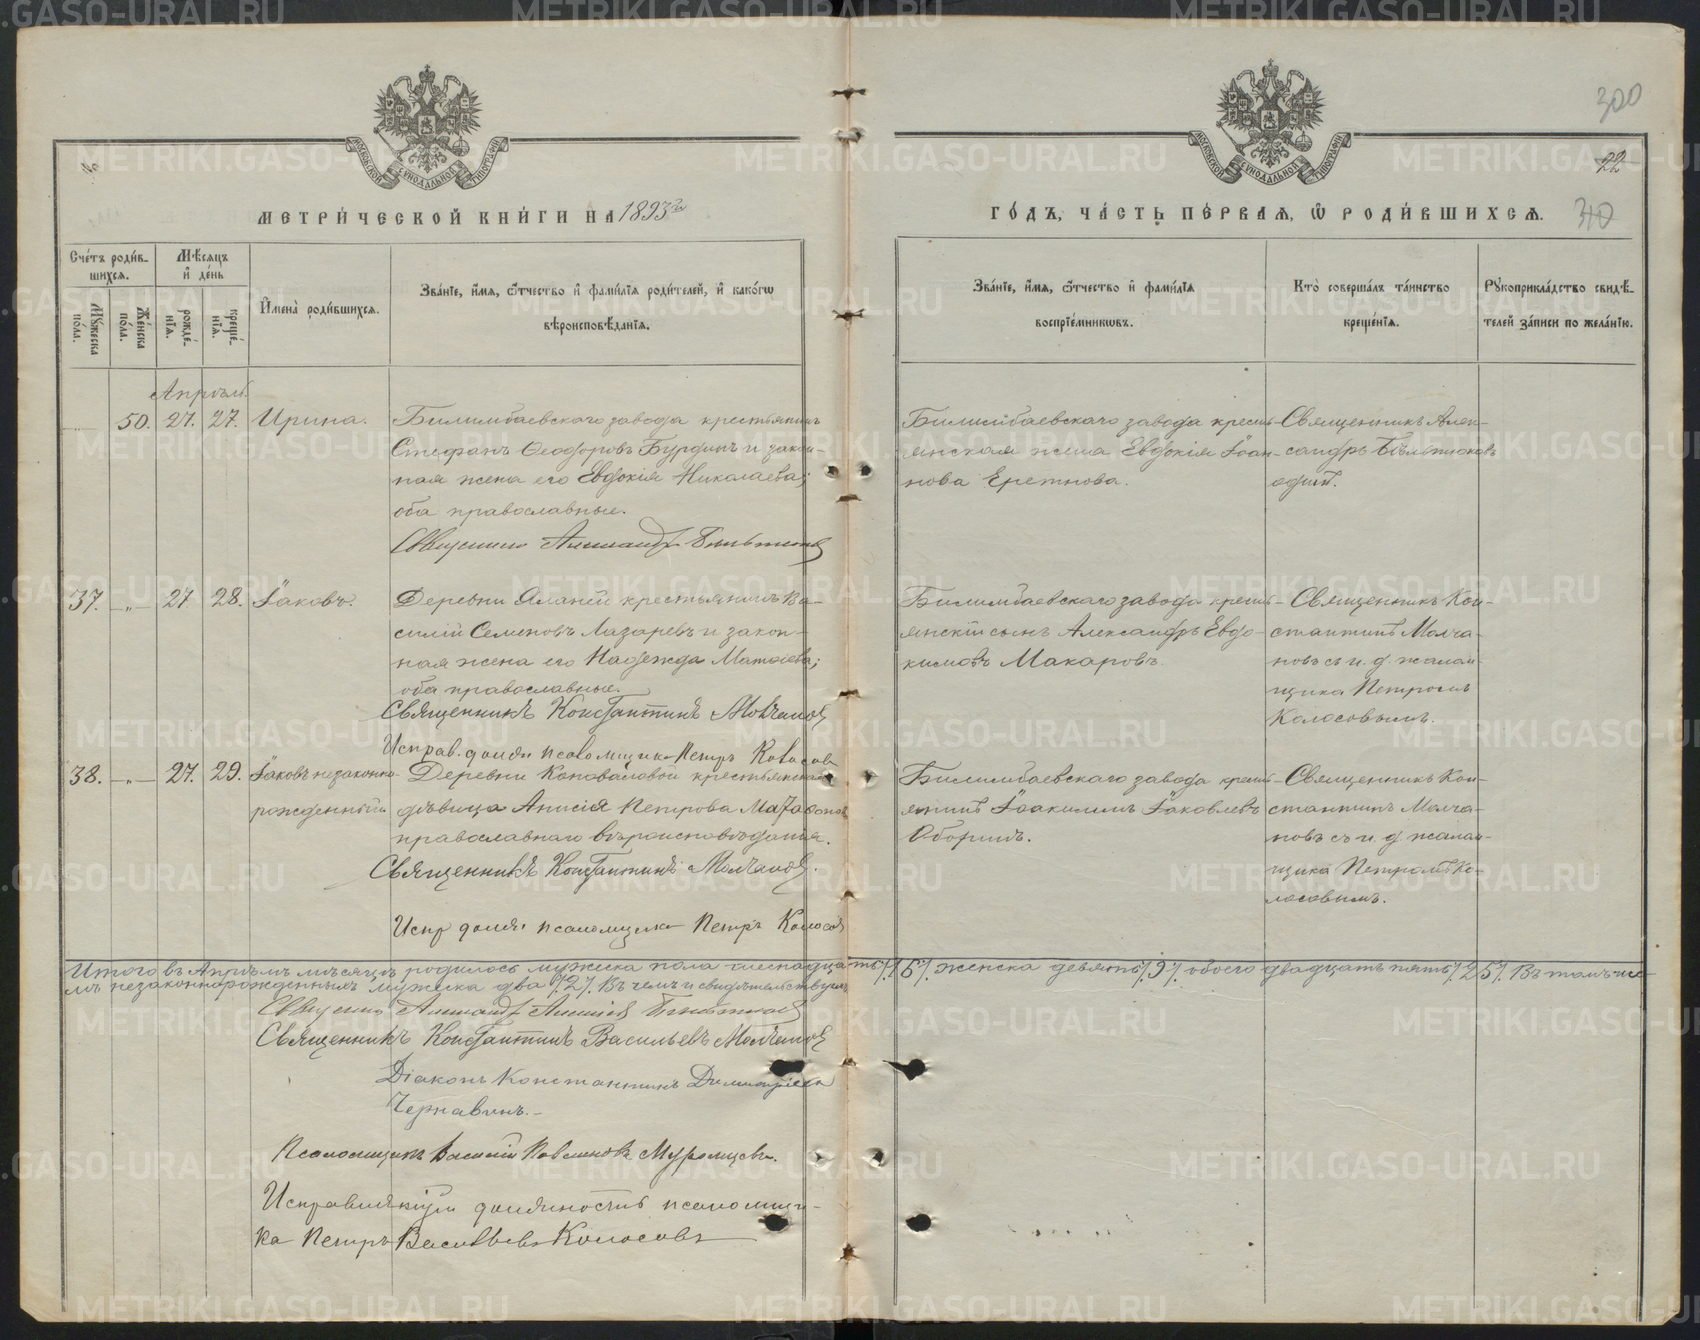 300
22
30
МЕТРИ́ЧЕСКОЙ КНИ́ГИ НА 1893 г.
ГО́ДЪ, ЧА́СТЬ ПЕ́РВАЯ, Ѽ РОДИ́ВШИХСЯ.
Сче́тъ роди́вшихся.
Му́жеска по́ла.
Же́нска по́ла.
Мѣ́сяцъ и҆ де́нь
рожде́нїя.
креще́нїя.
И҆мена̀ роди́вшихся.
Зва́нїе, и҆́мя, ѻ҆́тчество и҆ фами́лїя роди́телей, и҆ како́гѡ
вѣроисповѣ́данїя.
Зва́нїе, и҆́мя, ѻ҆́тчество и҆ фами́лїя
воспрїе́мникѡвъ.
Кто̀ соверша́лъ та́инство
креще́нїя.
Рꙋкоприкла́дство свидѣ́-
телей за́писи по жела́нїю.
Апрѣль
50. 27. 27. Ирина.
Билимбаевскаго завода крестьянинъ
Стефанъ Ѳеодоровъ Бурдинъ и закон-
ная жена его Евдокія Николаева;
оба православные.
Билимбаевскаго завода кресть-
янская жена Евдокія Іоан-
нова Еретнова.
Священникъ Алек-
сандръ Бѣльтюковъ
одинъ.
37. " 27 28. Іаковъ.
Деревни Яланги крестьянинъ Ва-
силій Семеновъ Лазаревъ и закон-
ная жена его Надежда Матѳіева;
оба православные.
Священникъ Константинъ Молчановъ
Исправ. должн псаломщика Петръ Колосовъ
Билимбаевскаго завода кресть-
янскій сынъ Александръ Евдо-
кимовъ Макаровъ.
Священникъ Кон-
стантинъ Молча-
новъ съ и. д. псалом-
щика Петромъ
Колосовымъ.
38. " 27. 29. Іаковъ незаконно-
рожденный.
Деревни Коноваловой крестьянская
дѣвица Анисія Петрова
православнаго вѣроисповѣданія.
Священникъ Константинъ Молчановъ.
Испр должн псаломщика Петръ Колосовъ
Билимбаевскаго завода кресть-
янинъ Іоакимъ Іаковлевъ
Оборинъ.
Священникъ Кон-
стантинъ Молча-
новъ съ и. д. псалом-
щика Петромъ Ко-
лосовымъ.
Итого въ Апрѣлѣ мѣсяцѣ родилось мужеска пола шестнадцать /16/, женска девять /9/, обоего двадцать пять /25/. Въ томъ чис-
лѣ незаконнорожденныхъ мужска два /2/. Въ чемъ и свидѣтельствуемъ
Священникъ Константинъ Васильевъ Молчановъ
Діаконъ Константинъ Димитріевъ
Чернавинъ.
Псаломщикъ Василій Павлиновъ Муромцевъ.
Исправляющій должность псаломщи-
ка Петръ Васильевъ Колосовъ
METRIKI.GASO-URAL.RU